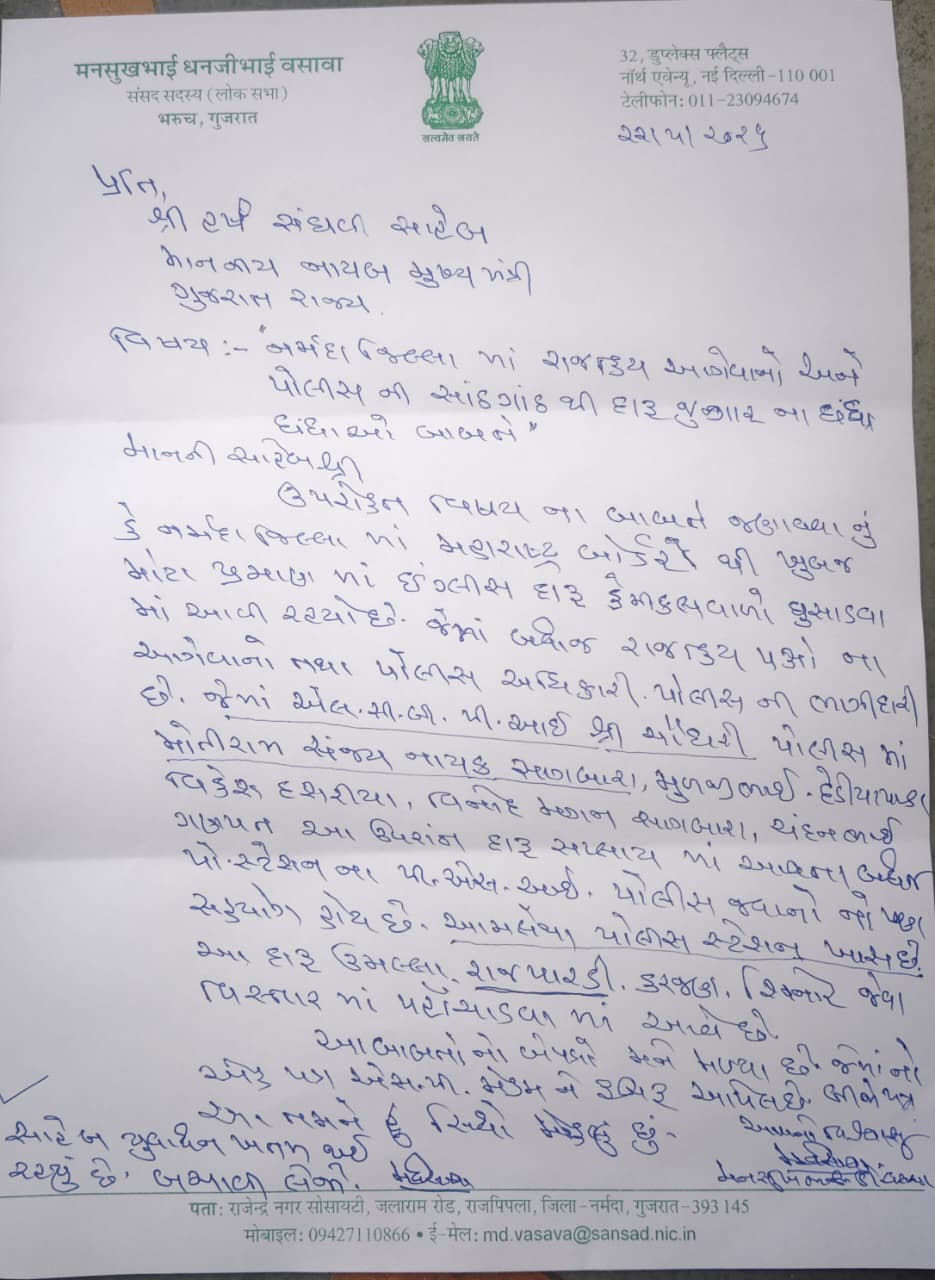 मनसुखभाई धनजीभाई वसावा
संसद सदस्य (लोक सभा)
भरुच, गुजरात
सत्यमेव जयते
32, डुप्लेक्स फ्लैट्स
नॉर्थ एवेन्यू, नई दिल्ली-110 001
टेलीफोन: 011-23094674
પ્રતિ,
શ્રી હર્ષ સંઘવી સાહેબ
માનનીય નાયબ મુખ્ય મંત્રી
ગુજરાત રાજ્ય.
વિષય :- "નર્મદા જિલ્લા માં રાજકીય આગેવાનો અને
પોલીસ ની સાંઠગાંઠ થી દારૂ જુગાર ના ધંધા
ધંધાઓ બાબતે"
માનની સાહેબશ્રી
ઉપરોક્ત વિષય ના બાબતે જણાવવાનું
કે નર્મદા જિલ્લા માં મહારાષ્ટ્ર બોર્ડરો થી ખુબજ
મોટા પ્રમાણ માં ઈંગ્લીસ દારૂ કેમીકલવાળો ઘુસાડવા
માં આવી રહ્યો છે. જેમાં બધાજ રાજકીય પક્ષો ના
આગેવાનો તથા પોલીસ અધિકારી. પોલીસ ની ભાગીદારી
છે. જેમાં એલ.સી.બી. પી.આઈ શ્રી ચૌધરી પોલીસ માં
મોતીરામ સંજય નાયક સાગબારા, મુળજીભાઈ. ડેડીયાપાડા
વિકેશ દશરીયા, વિનોદ મગન સાગબારા, ચંદનભાઈ
ગણપત આ ઉપરાંત દારૂ સપ્લાય માં આવતા બધાજ
પો.સ્ટેશન ના પી.એસ.આઈ. પોલીસ જવાનો નો પણ
સહયોગ હોય છે. આમલેથા પોલીસ સ્ટેશન ખાસ છે.
આ દારૂ ઉમલ્લા, રાજપારડી, કરજણ, શિનોર જેવા
વિસ્તાર માં પહોંચાડવા માં આવે છે.
આ બાબતોનો બે પત્રો મને મળ્યા છે. જેમાં નો
એક પત્ર એસ.પી. મેડમ ને રૂબરૂ આપેલ છે. બીજો પત્ર
આ તમને હું સિધો મોકલું છું.
સાહેબ યુવાધન ખતમ થઈ
રહ્યું છે. બચાવી લેજો.
આપનો વિશ્વાસુ
पता: राजेन्द्र नगर सोसायटी, जलाराम रोड, राजपिपला, जिला-नर्मदा, गुजरात-393 145
मोबाइल: 09427110866 • ई-मेल: md.vasava@sansad.nic.in